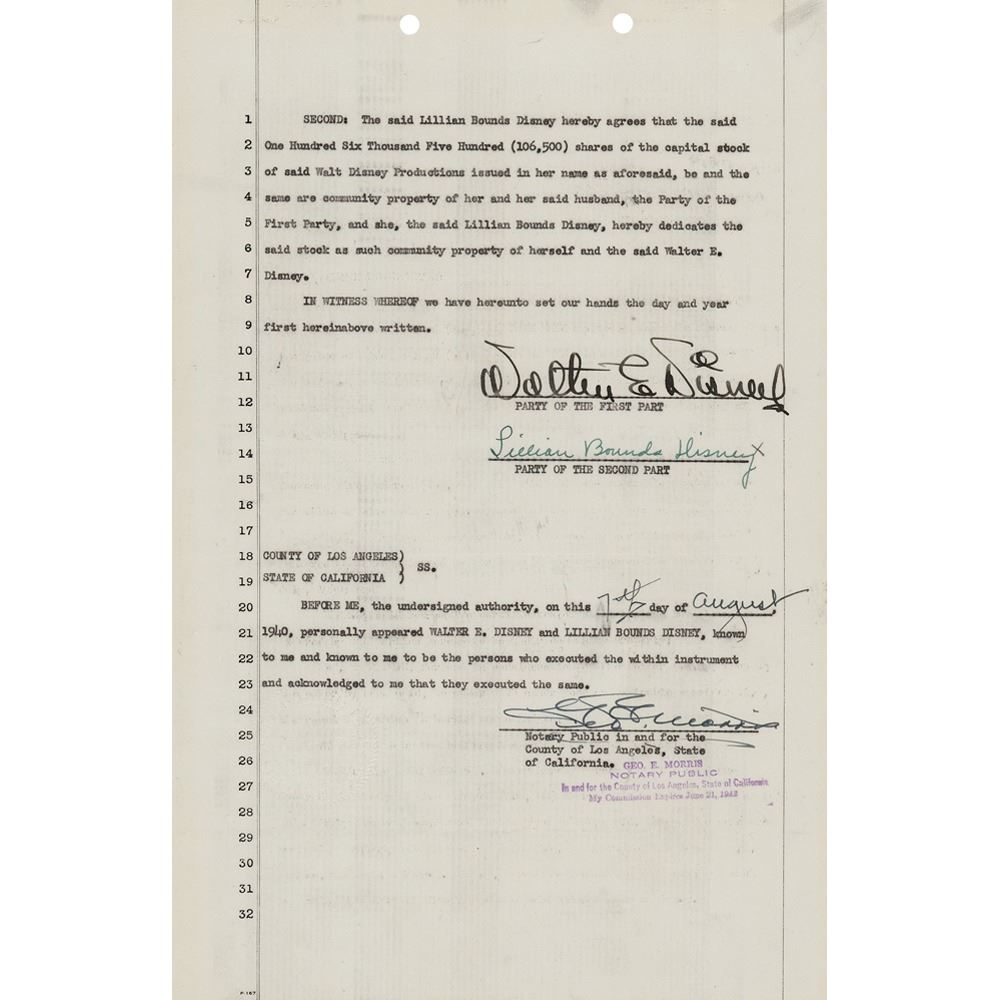 1 SECOND: The said Lillian Bounds Disney hereby agrees that the said
2 One Hundred Six Thousand Five Hundred (106,500) shares of the capital stock
3 of said Walt Disney Productions issued in her name as aforesaid, be and the
4 same are community property of her and her said husband, the Party of the
5 First Party, and she, the said Lillian Bounds Disney, hereby dedicates the
6 said stock as such community property of herself and the said Walter E.
7 Disney.
8 IN WITNESS WHEREOF we have hereunto set our hands the day and year
9 first hereinabove written.
10
11 Walter E Disney
12 PARTY OF THE FIRST PART
13
14 Lillian Bounds Disney
15 PARTY OF THE SECOND PART
16
17
18 COUNTY OF LOS ANGELES)
) SS.
19 STATE OF CALIFORNIA )
20 BEFORE ME, the undersigned authority, on this 7th day of August
21 1940, personally appeared WALTER E. DISNEY and LILLIAN BOUNDS DISNEY, known
22 to me and known to me to be the persons who executed the within instrument
23 and acknowledged to me that they executed the same.
24 Geo. E. Morris
25 Notary Public in and for the
County of Los Angeles, State
26 of California. GEO. E. MORRIS
NOTARY PUBLIC
27 In and for the County of Los Angeles, State of California
My Commission Expires June 21, 1942
28
29
30
31
32
P-167